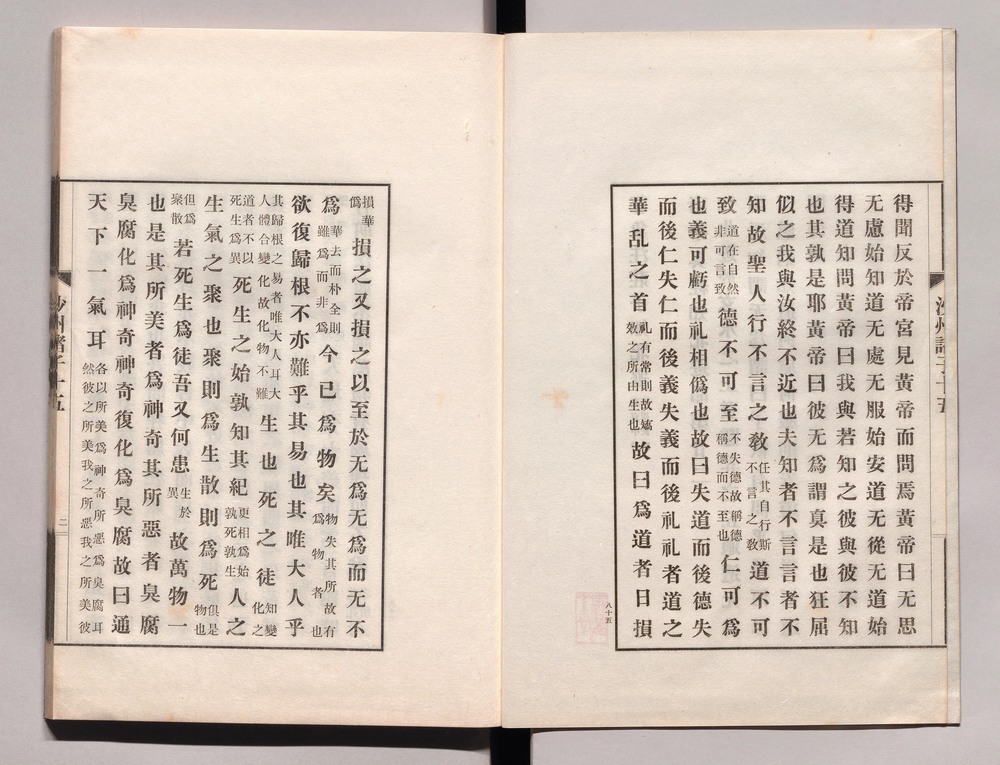 得聞反於帝宮見黃帝而問焉黃帝曰无思
无慮始知道无處无服始安道无從无道始
得道知問黃帝曰我與若知之彼與彼不知
也其孰是耶黃帝曰彼无爲謂真是也狂屈
似之我與汝終不近也夫知者不言言者不
知故聖人行不言之教任其自行斯不言之教道不可
致道在自然非可言致德不可至不失德故稱德稱德而不至也仁可爲
也義可虧也礼相僞也故曰失道而後德失
而後仁失仁而後義失義而後礼礼者道之
華乱之首礼有常則故矯效之所由生也故曰爲道者日損
損華僞損之又損之以至於无爲无爲而无不
爲華去而朴全則雖爲而非爲今已爲物矣物失其所故有爲物者也
欲復歸根不亦難乎其易也其唯大人乎
其歸根之易者唯大人耳大人體合變化故化物不難生也死之徒知變化之
道者不以死生爲異死生之始孰知其紀更相爲始孰死孰生人之
生氣之聚也聚則爲生散則爲死俱是物也
但爲聚散若死生爲徒吾又何患生於異故萬物一
也是其所美者爲神奇其所惡者臭腐
臭腐化爲神奇神奇復化爲臭腐故曰通
天下一氣耳各以所美爲神奇所惡爲臭腐耳然彼之所美我之所惡我之所美彼
沙州諸子十五
二
八十五